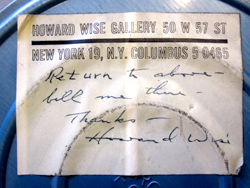 HOWARD WISE GALLERY 50 W 57 ST
NEW YORK 19, N.Y. COLUMBUS 5 0465
Return to above-
bill me there-
Thanks-
Howard Wise